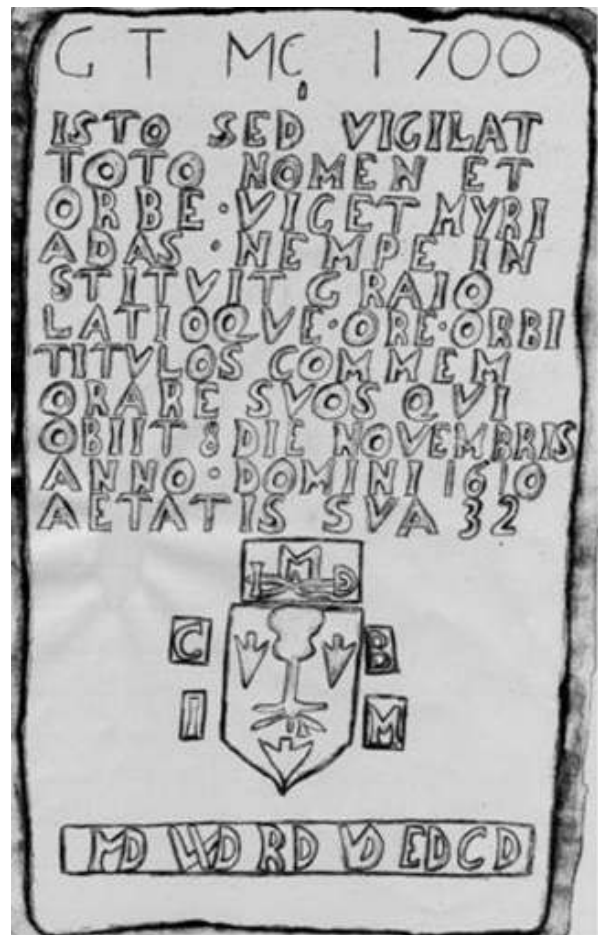 G T MC 1700
ISTO SED VIGILAT
TOTO NOMEN ET
ORBE · VIGET MYRI
ADAS · NEMPE IN
STITVIT GRAIO
LATIOQVE · ORE · ORBI
TITVLOS COMMEM
ORARE SVOS QVI
OBIIT 8 DIE NOVEMBRIS
ANNO · DOMINI 1610
AETATIS SVA 32
I M D
C B
I M
MD WD RD VD ED CD